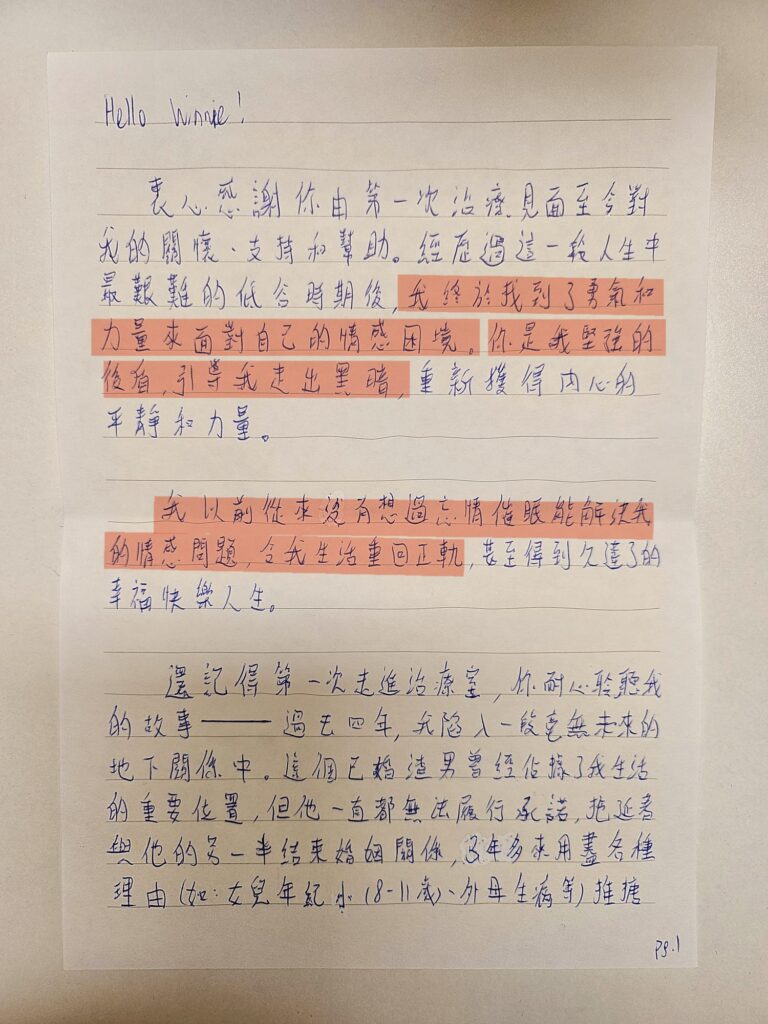 Hello Winnie!
衷心感謝你由第一次治療見面至今對
我的關懷、支持和幫助。經歷過這一輪人生中
最艱難的低谷時期後,我終於找到了勇氣和
力量來面對自己的情感困境。你是我堅強的
後盾,引導我走出黑暗,重新獲得內心的
平靜和力量。
我以前從來沒有想過忘情催眠能解決我
的情感問題,令我生活重回正軌,甚至得到久違了的
幸福快樂人生。
還記得第一次走進治療室,你耐心聆聽我
的故事——過去四年,我陷入一段毫無未來的
地下關係中。這個已婚渣男曾經佔據了我生活
的重要位置,但他一直都無法履行承諾,拖延著
與他的另一半結束婚姻關係,3年多來用盡各種
理由(如:女兒年紀小(8-11歲)、外母生病等)推搪
Pg.1